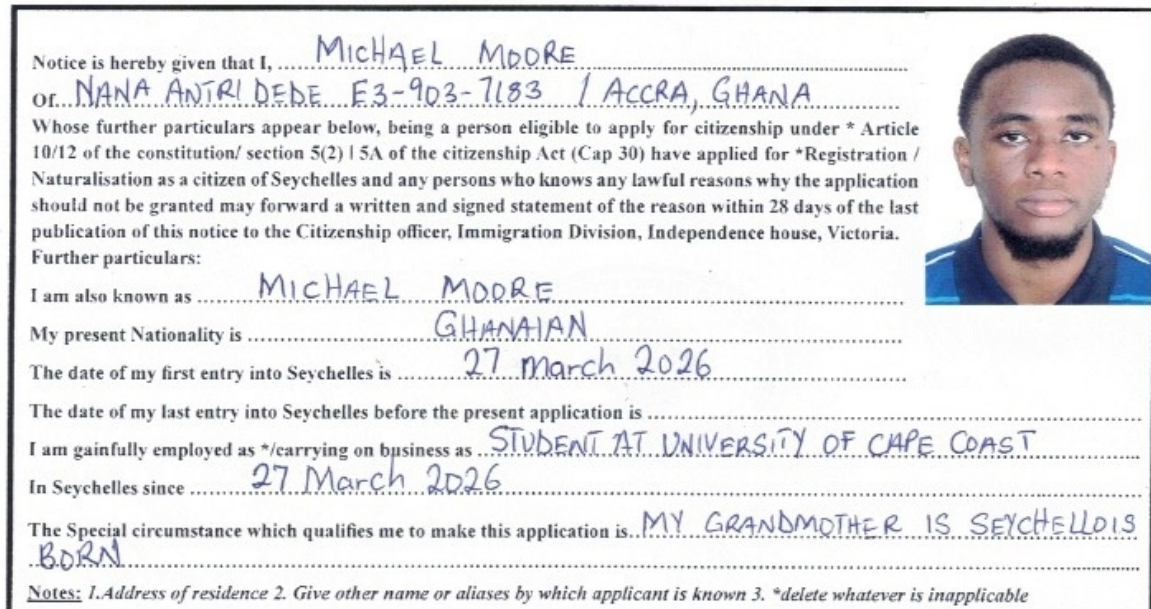 Notice is hereby given that I, MICHAEL MOORE
Of NANA ANTRI DEDE E3-903-7183 / ACCRA, GHANA
Whose further particulars appear below, being a person eligible to apply for citizenship under * Article
10/12 of the constitution/ section 5(2) | 5A of the citizenship Act (Cap 30) have applied for *Registration /
Naturalisation as a citizen of Seychelles and any persons who knows any lawful reasons why the application
should not be granted may forward a written and signed statement of the reason within 28 days of the last
publication of this notice to the Citizenship officer, Immigration Division, Independence house, Victoria.
Further particulars:
I am also known as MICHAEL MOORE
My present Nationality is GHANAIAN
The date of my first entry into Seychelles is 27 March 2026
The date of my last entry into Seychelles before the present application is
I am gainfully employed as */carrying on business as STUDENT AT UNIVERSITY OF CAPE COAST
In Seychelles since 27 March 2026
The Special circumstance which qualifies me to make this application is MY GRANDMOTHER IS SEYCHELLOIS
BORN
Notes: 1.Address of residence 2. Give other name or aliases by which applicant is known 3. *delete whatever is inapplicable